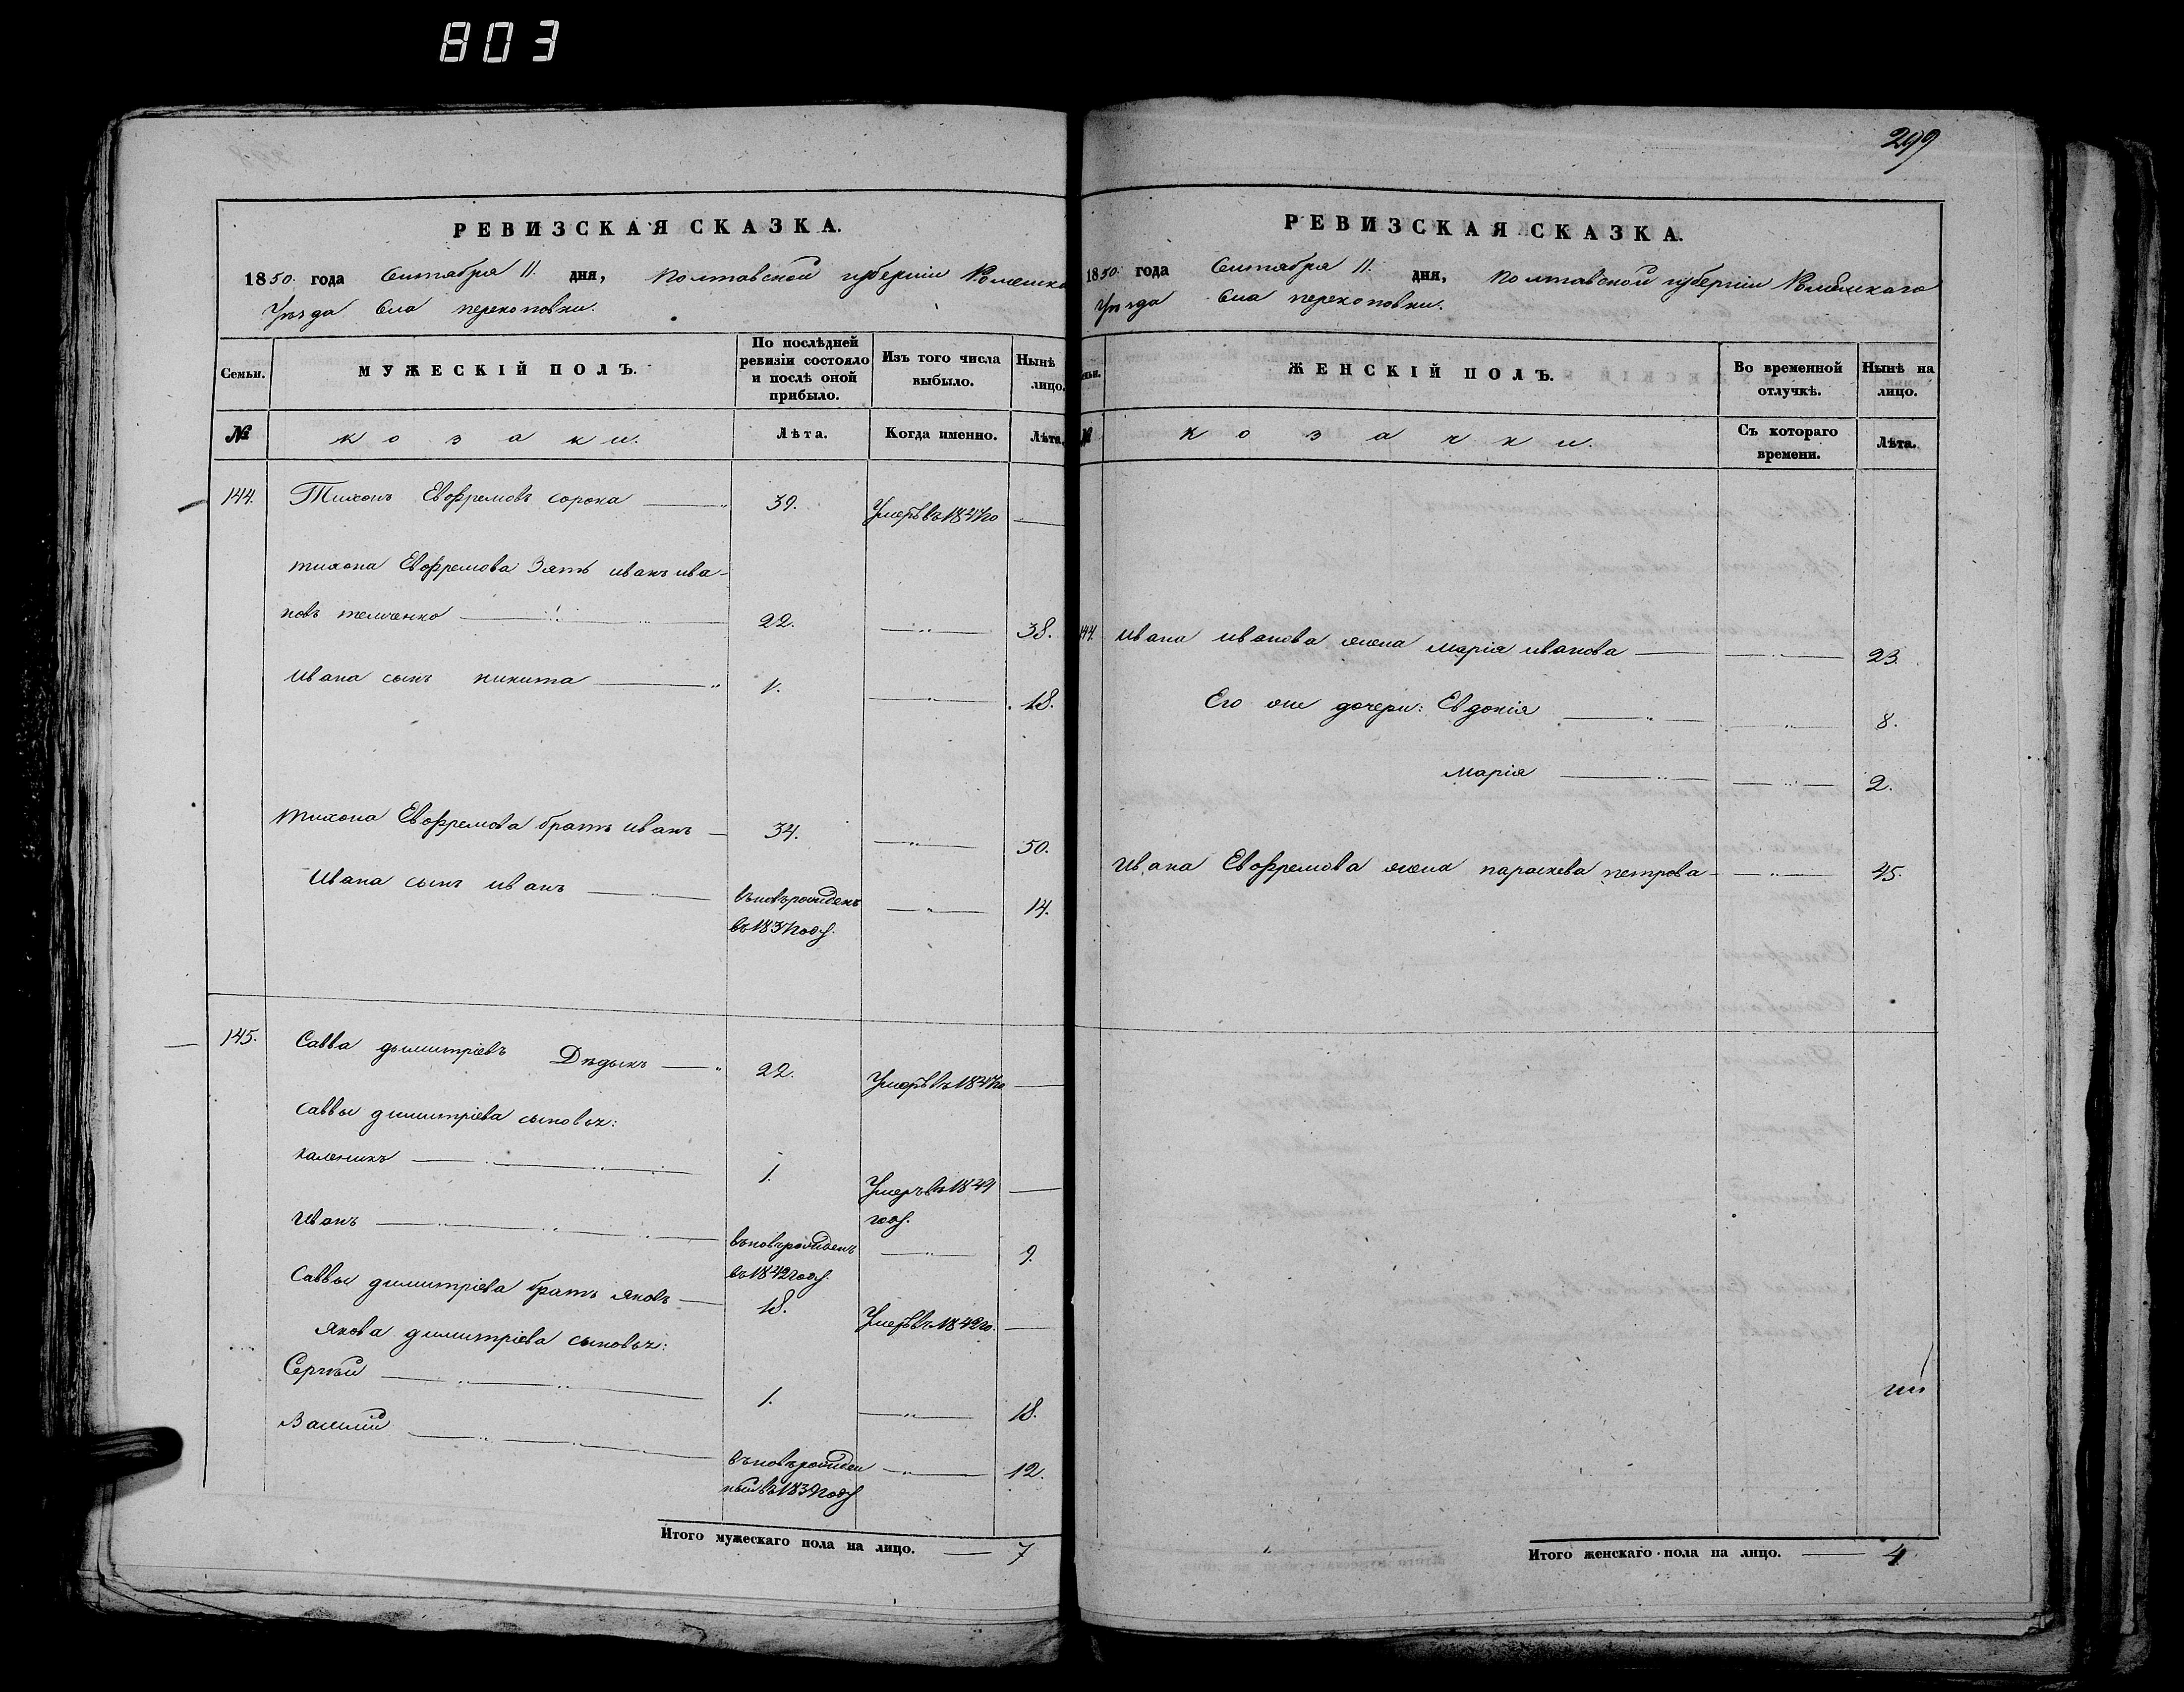 803
РЕВИЗСКАЯ СКАЗКА.
1850. года Сентября 11. дня, Полтавской губерніи Роменска
Уѣзда Села перекоповки.
Семьи.
МУЖЕСКІЙ ПОЛЪ.
По послѣдней ревизіи состояло и послѣ оной прибыло.
Изъ того числа выбыло.
Нынѣ лицо.
№
козаки.
Лѣта.
Когда именно.
Лѣта.
144. Тихонъ Евофремовъ сорока 39. Умеръ въ 1847го
тихона Евофремова Зять иванъ ива-
новъ темченко 22. 38.
Ивана сынъ никита 1. 18.
тихона Евофремова братъ иванъ 34. 50.
Ивана сынъ иванъ вьновърожденъ 14.
въ 1837году.
145. Савва димитріевъ Дѣдыкъ 22. Умеръ въ 1847го
саввы димитріева сыновья:
каленикъ 1. Умеръ въ 1849
году.
Иванъ вьновърожденъ 9.
въ 1842году.
Саввы димитріева братъ яковъ 18. Умеръ въ 1842го.
якова димитріева сыновья:
Сергѣй 1. 18.
Василій вьновърожден 12.
ный въ 1839году
Итого мужескаго пола на лицо. 7
299
РЕВИЗСКАЯ СКАЗКА.
1850. года Сентября 11. дня, Полтавской губерніи Роменскаго
Уѣзда Села перекоповки.
ЖЕНСКІЙ ПОЛЪ.
Во временной отлучкѣ.
Нынѣ на лицо.
№
козачки.
Съ котораго времени.
Лѣта.
144. Ивана иванова жена марія иванова 23.
Его же дочери: Евдокія 8.
марія 2.
Ивана Евофремова жена параскева петрова 45.
Итого женскаго пола на лицо. 4